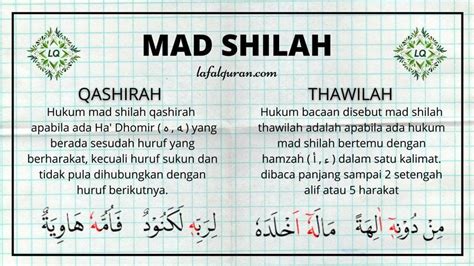 LQ
LQ
MAD SHILAH
lafalquran.com
QASHIRAH
Hukum mad shilah qashirah
apabila ada Ha' Dhomir ( ه , ـه ) yang
berada sesudah huruf yang
berharakat, kecuali huruf sukun dan
tidak pula dihubungkan dengan
huruf berikutnya.
لِرَبِّهٖ لَكَنُوْدٌ فَاُمُّهٗ هَاوِيَةٌ
THAWILAH
Hukum bacaan disebut mad shilah
thawilah adalah apabila ada hukum
mad shilah bertemu dengan
hamzah ( ء , أ ) dalam satu kalimat.
dibaca panjang sampai 2 setengah
alif atau 5 harakat
مِنْ دُوْنِهٖٓ اٰلِهَةً مَالَهٗٓ اَخْلَدَهٗ